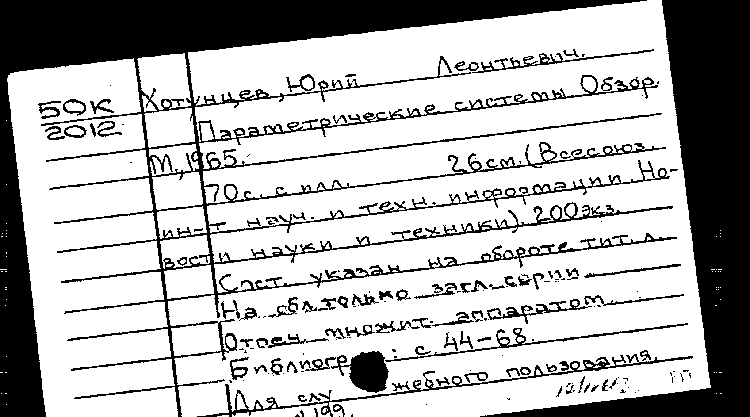 50К
2012
Хотунцев, Юрий Леонтьевич.
Параметрические системы Обзор.
М., 1965.
70с. с илл. 26см. (Всесоюз.
ин-т науч. и техн. информации. Но-
вости науки и техники). 200экз.
Сост. указан на обороте тит. л.
На обл. только загл. серии.
Отпеч. множит. аппаратом.
Библиогр.: с. 44-68.
Для служебного пользования.
199.